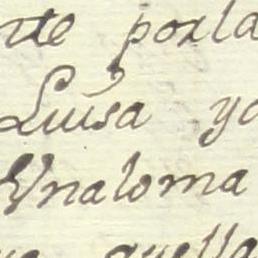 rte porla
Luisa yo
Vnaloma
aquella